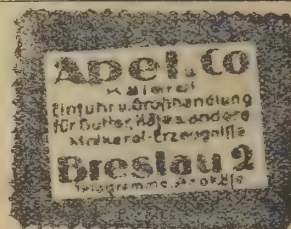 Apel & Co
Käserei
Einfuhr u. Großhandlung
für Butter, Käse u. andere
Molkerei-Erzeugnisse
Breslau 2
Telegramme: